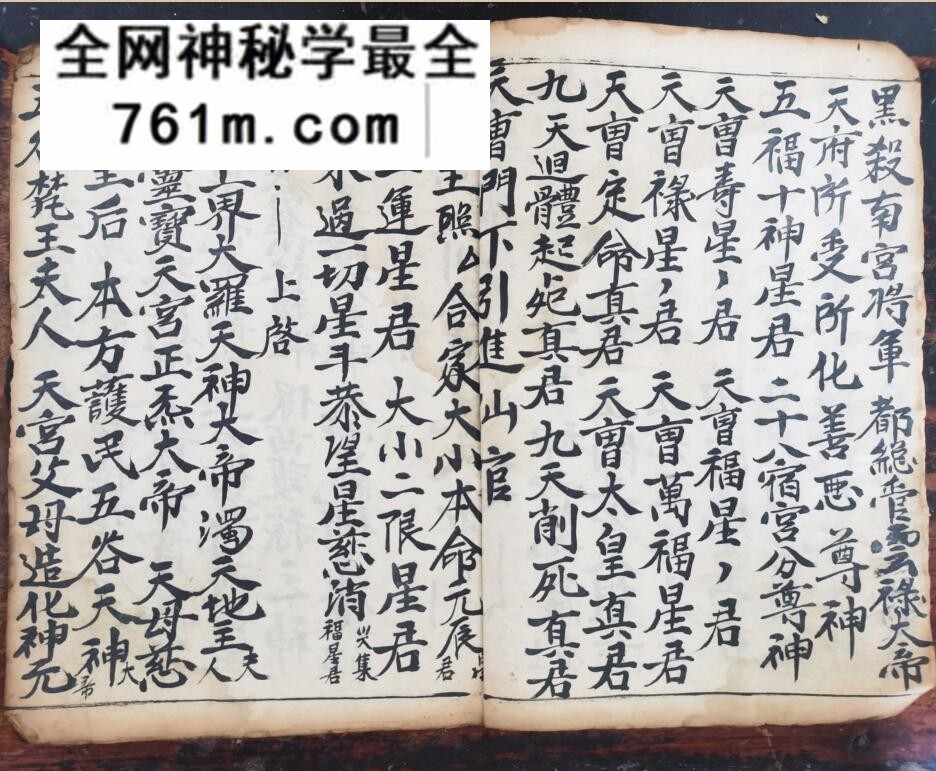 全网神秘学最全
761m.com
黑殺南宮将軍 都總管雲祿大帝
天府所受所化善恶尊神
五福十神星君 二十八宿宮分尊神
天曺壽星,君 天曺福星,君
天曺祿星,君 天曺萬福星君
天曺定命真君 天曺太皇真君
九天迴體起 真君 九天削死真君
天曺門下引進 官
照 合 大小本命元辰君
運星君 大小二限星君
過一切星斗恭望星慈消 集福星君
上啓
上界大羅天神大帝 濁天地主夫人
靈寶天宮正 大帝 天母慈
后 本方護民五谷天神大帝
梵王夫人 天宮父母造化神元